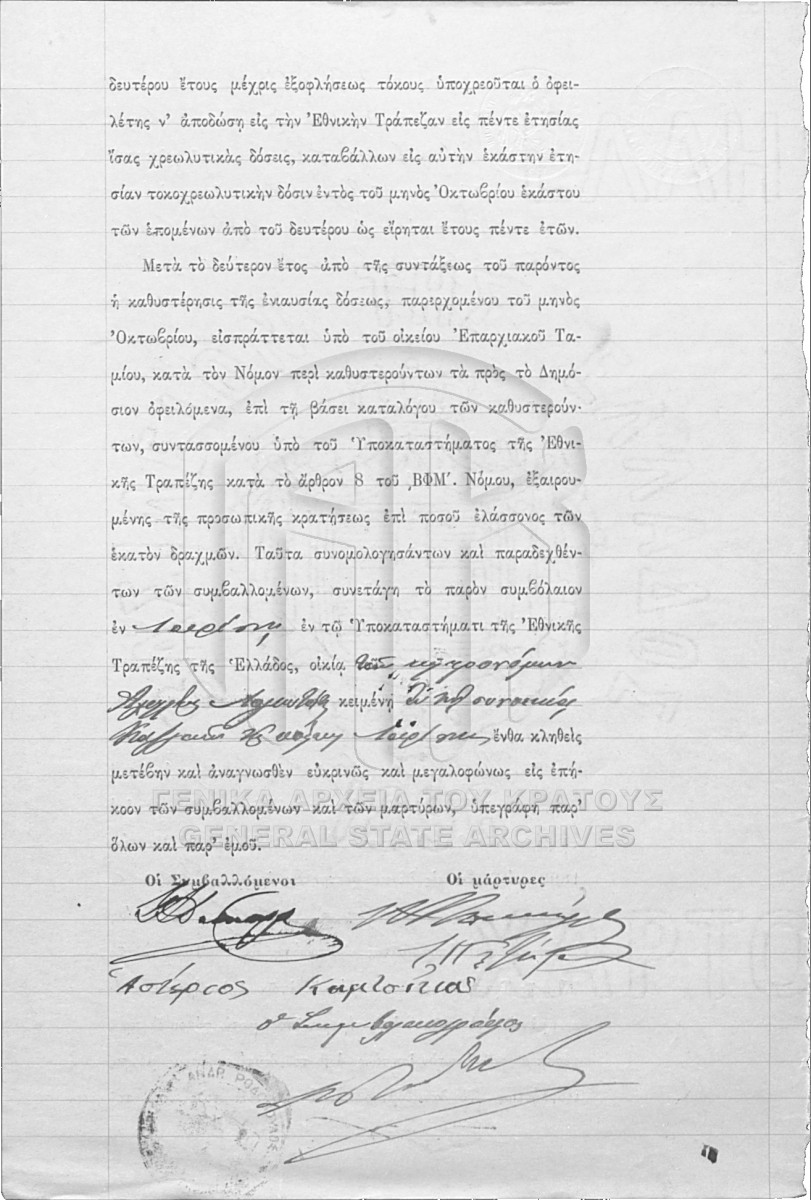 δευτέρου ἔτους μέχρις ἐξοφλήσεως τόκους ὑποχρεοῦται ὁ ὀφει-
λέτης ν' ἀποδώσῃ εἰς τὴν Ἐθνικὴν Τράπεζαν εἰς πέντε ἐτησίας
ἴσας χρεωλυτικὰς δόσεις, καταβάλλων εἰς αὐτὴν ἑκάστην ἐτη-
σίαν τοκοχρεωλυτικὴν δόσιν ἐντὸς τοῦ μηνὸς Ὀκτωβρίου ἑκάστου
τῶν ἑπομένων ἀπὸ τοῦ δευτέρου ὡς εἴρηται ἔτους πέντε ἐτῶν.
Μετὰ τὸ δεύτερον ἔτος ἀπὸ τῆς συντάξεως τοῦ παρόντος
ἡ καθυστέρησις τῆς ἐνιαυσίας δόσεως, παρερχομένου τοῦ μηνὸς
Ὀκτωβρίου, εἰσπράττεται ὑπὸ τοῦ οἰκείου Ἐπαρχιακοῦ Τα-
μίου, κατὰ τὸν Νόμον περὶ καθυστερούντων τὰ πρὸς τὸ Δημό-
σιον ὀφειλόμενα, ἐπὶ τῇ βάσει καταλόγου τῶν καθυστερούν-
των, συντασσομένου ὑπὸ τοῦ Ὑποκαταστήματος τῆς Ἐθνι-
κῆς Τραπέζης κατὰ τὸ ἄρθρον 8 τοῦ ͵ΒΦΜ΄. Νόμου, ἐξαιρου-
μένης τῆς προσωπικῆς κρατήσεως ἐπὶ ποσοῦ ἐλάσσονος τῶν
ἑκατὸν δραχμῶν. Ταῦτα συνομολογησάντων καὶ παραδεχθέν-
των τῶν συμβαλλομένων, συνετάγη τὸ παρὸν συμβόλαιον
ἐν Λαρίσῃ ἐν τῷ Ὑποκαταστήματι τῆς Ἐθνικῆς
Τραπέζης τῆς Ἑλλάδος, οἰκίᾳ τῶν κληρονόμων
κειμένῃ συνοικίαν
Λαρίσης ἔνθα κληθεὶς
μετέβην καὶ ἀναγνωσθὲν εὐκρινῶς καὶ μεγαλοφώνως εἰς ἐπή-
κοον τῶν συμβαλλομένων καὶ τῶν μαρτύρων, ὑπεγράφη παρ'
ὅλων καὶ παρ' ἐμοῦ.
ΓΕΝΙΚΑ ΑΡΧΕΙΑ ΤΟΥ ΚΡΑΤΟΥΣ
GENERAL STATE ARCHIVES
Οἱ Συμβαλλόμενοι Οἱ μάρτυρες
Ἀστέριος
ὁ Συμβολαιογράφος